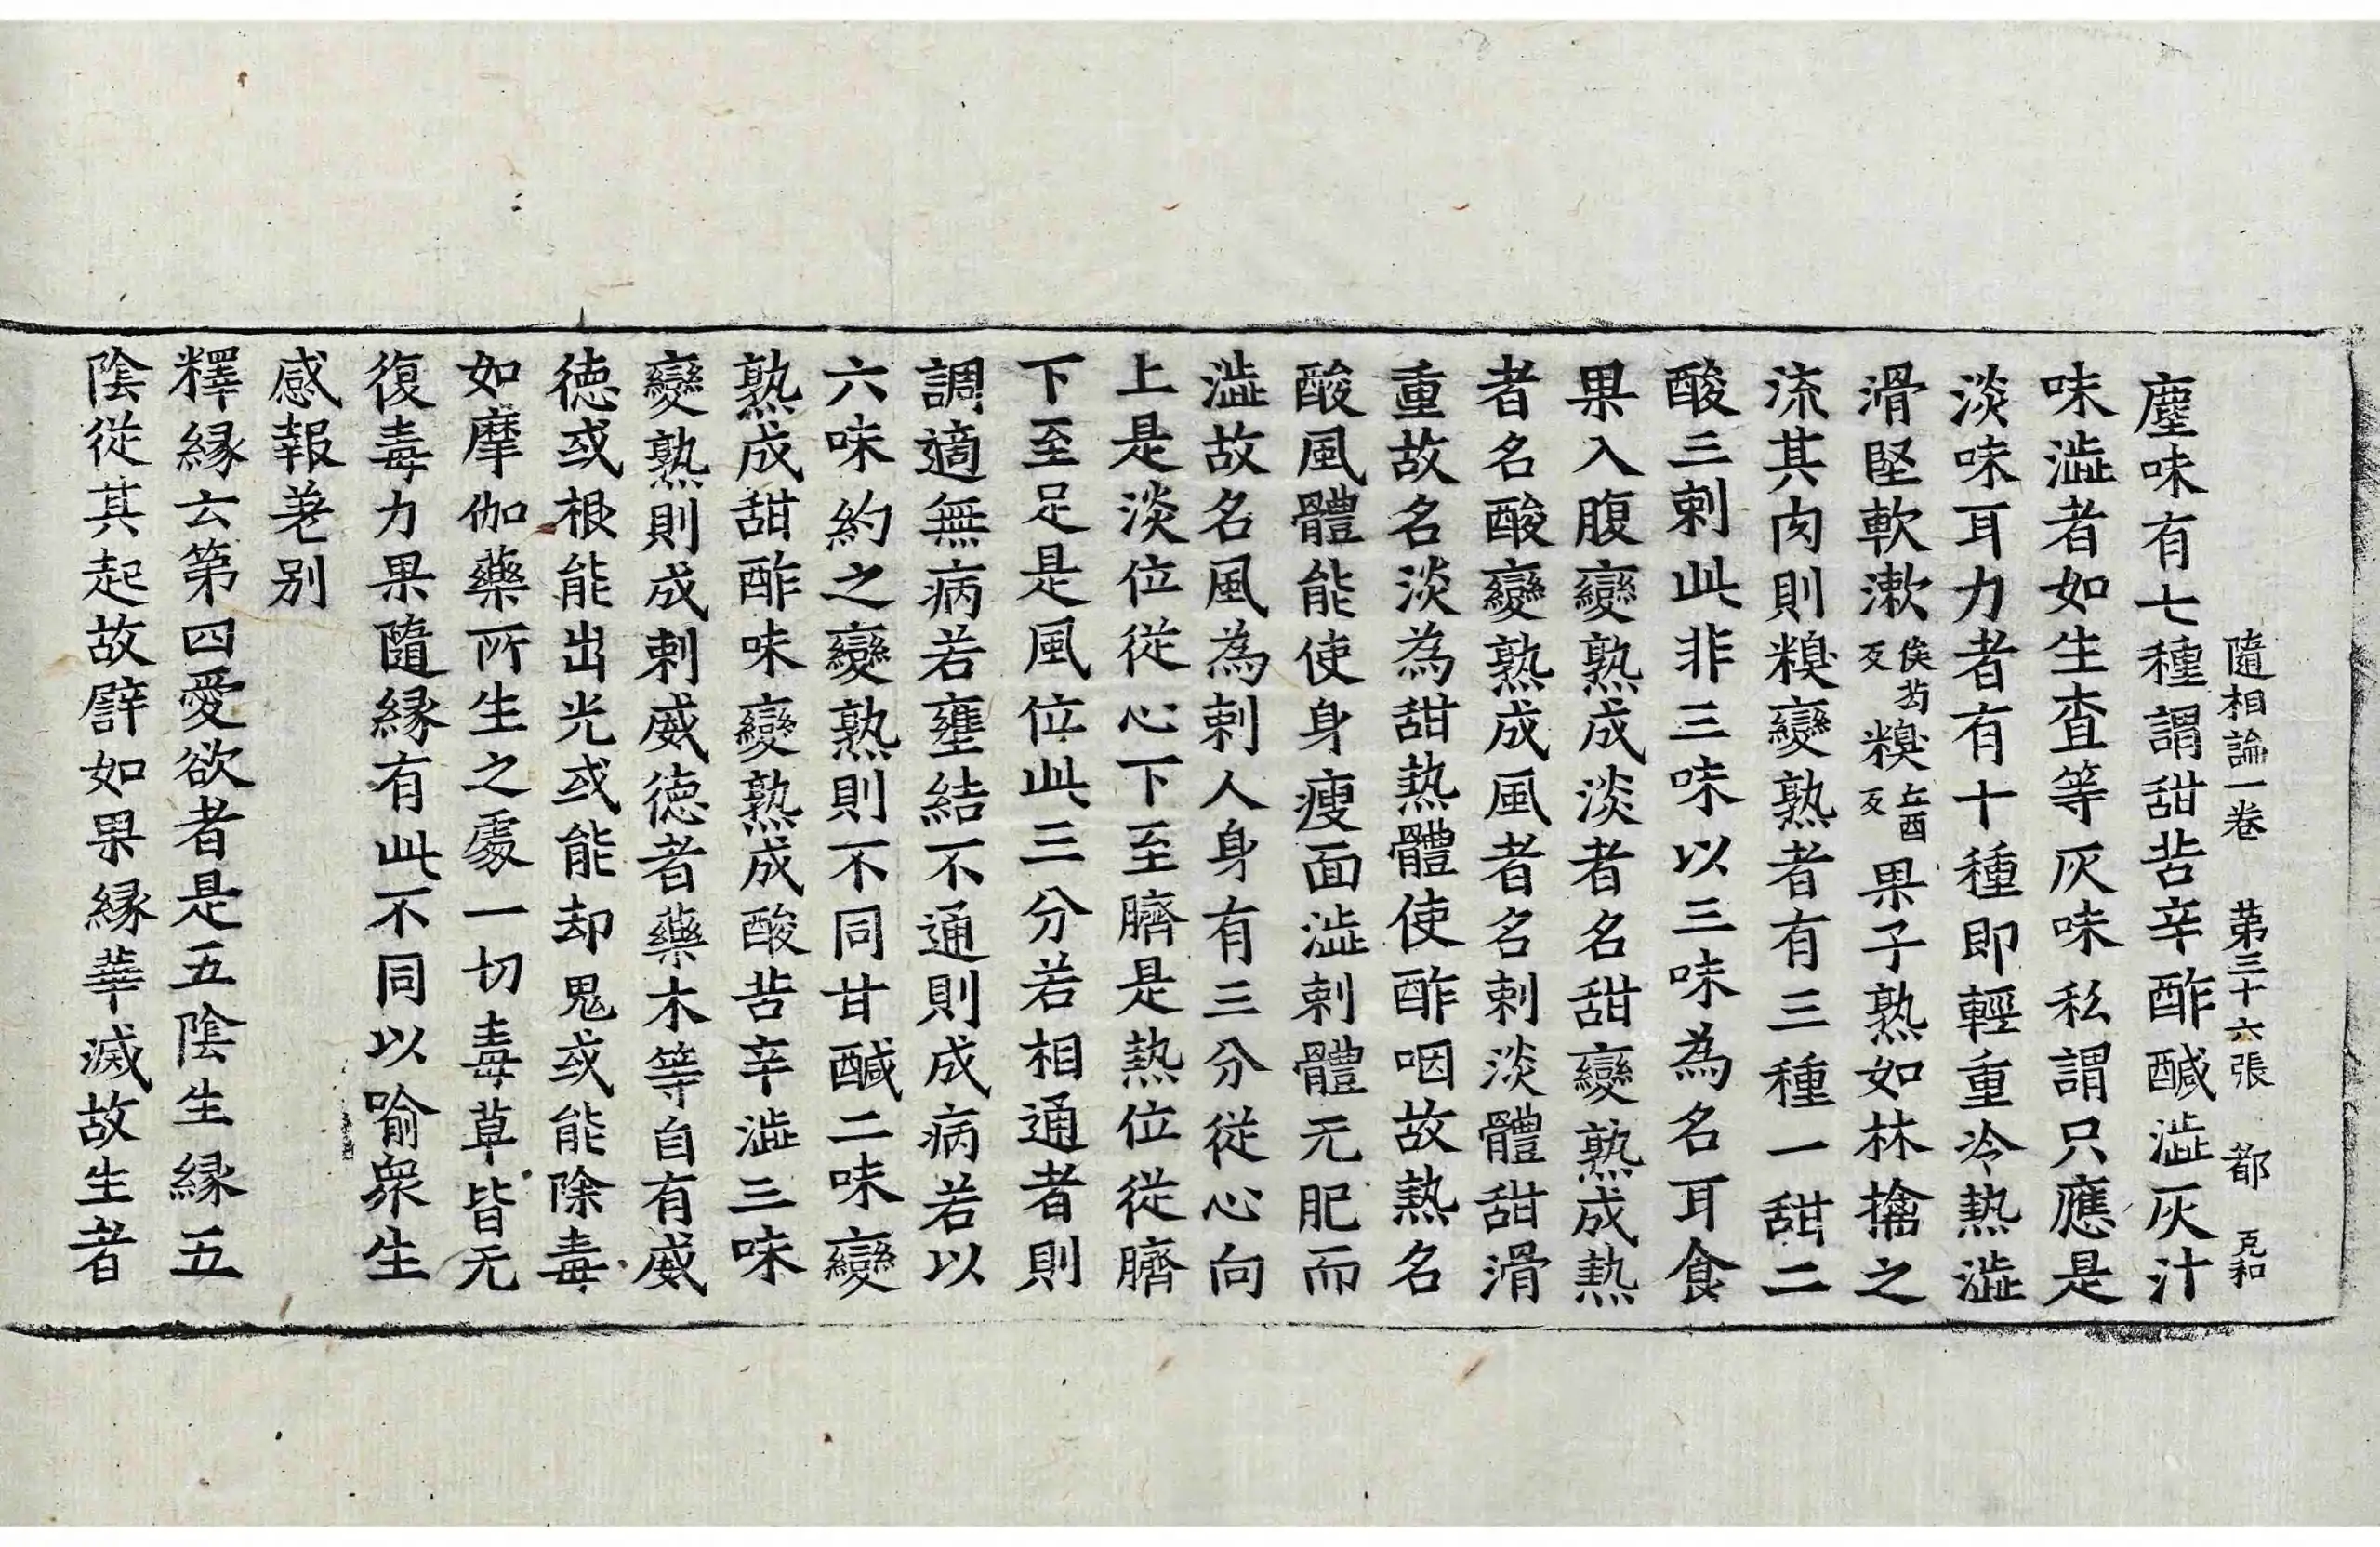 隨相論一卷 第三十六張 都 克和
塵味有七種謂甜苦辛酢醎澁灰汁
味澁者如生査等灰味私謂只應是
淡味耳力者有十種即輕重冷熱澁
滑堅軟漱侯芶反糗丘酉反果子熟如林擒之
流其肉則糗變熟者有三種一甜二
酸三剌此非三味以三味為名耳食
果入腹變熟成淡者名甜變熟成熱
者名酸變熟成風者名剌淡體甜滑
重故名淡為甜熱體使酢咽故熱名
酸風體能使身瘦面澁剌體无肥而
澁故名風為剌人身有三分從心向
上是淡位從心下至臍是熱位從臍
下至足是風位此三分若相通者則
調適無病若壅結不通則成病若以
六味約之變熟則不同甘醎二味變
熟成甜酢味變熟成酸苦辛澁三味
變熟則成剌威徳者藥木等自有威
徳或根能出光或能却鬼或能除毒
如摩伽藥所生之處一切毒草皆无
復毒力果隨緣有此不同以喻衆生
感報差別
釋緣云第四愛欲者是五陰生緣五
陰從其起故譬如果緣華滅故生者